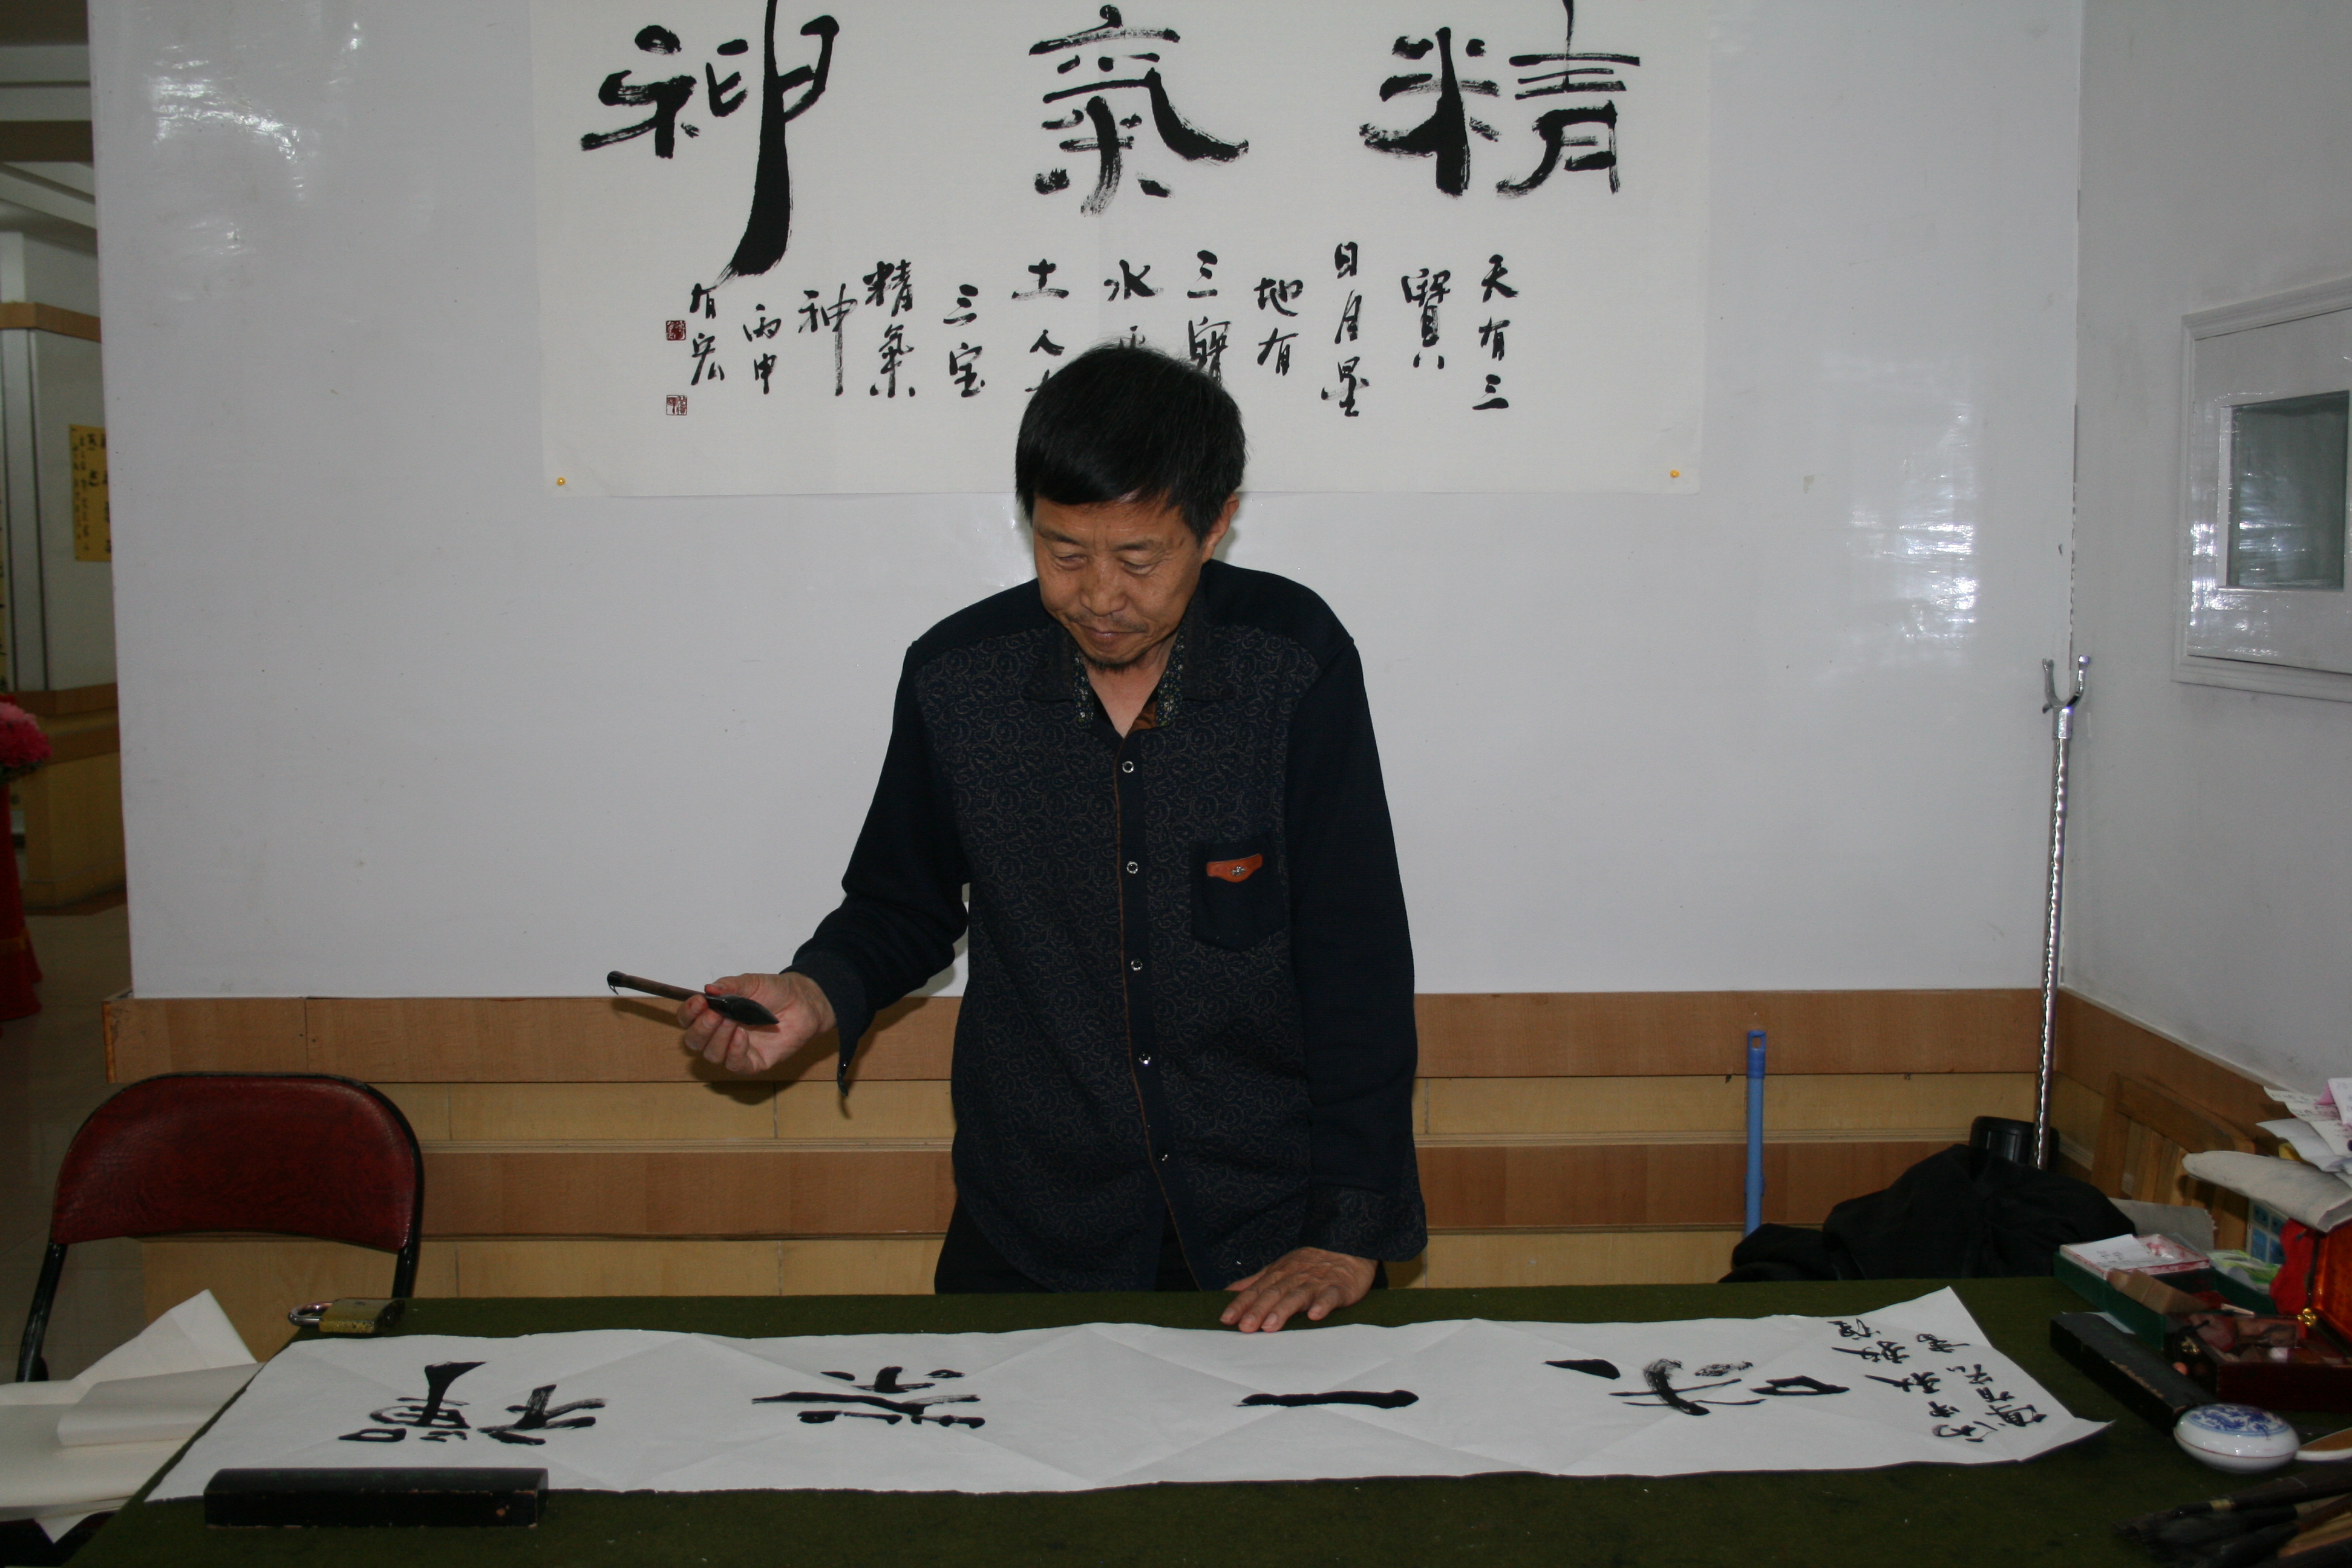 精氣神
天有三
寶
日月星
地有
三寶
水
土人
三宝
精氣
神
丙申
有宏
禪茶一味